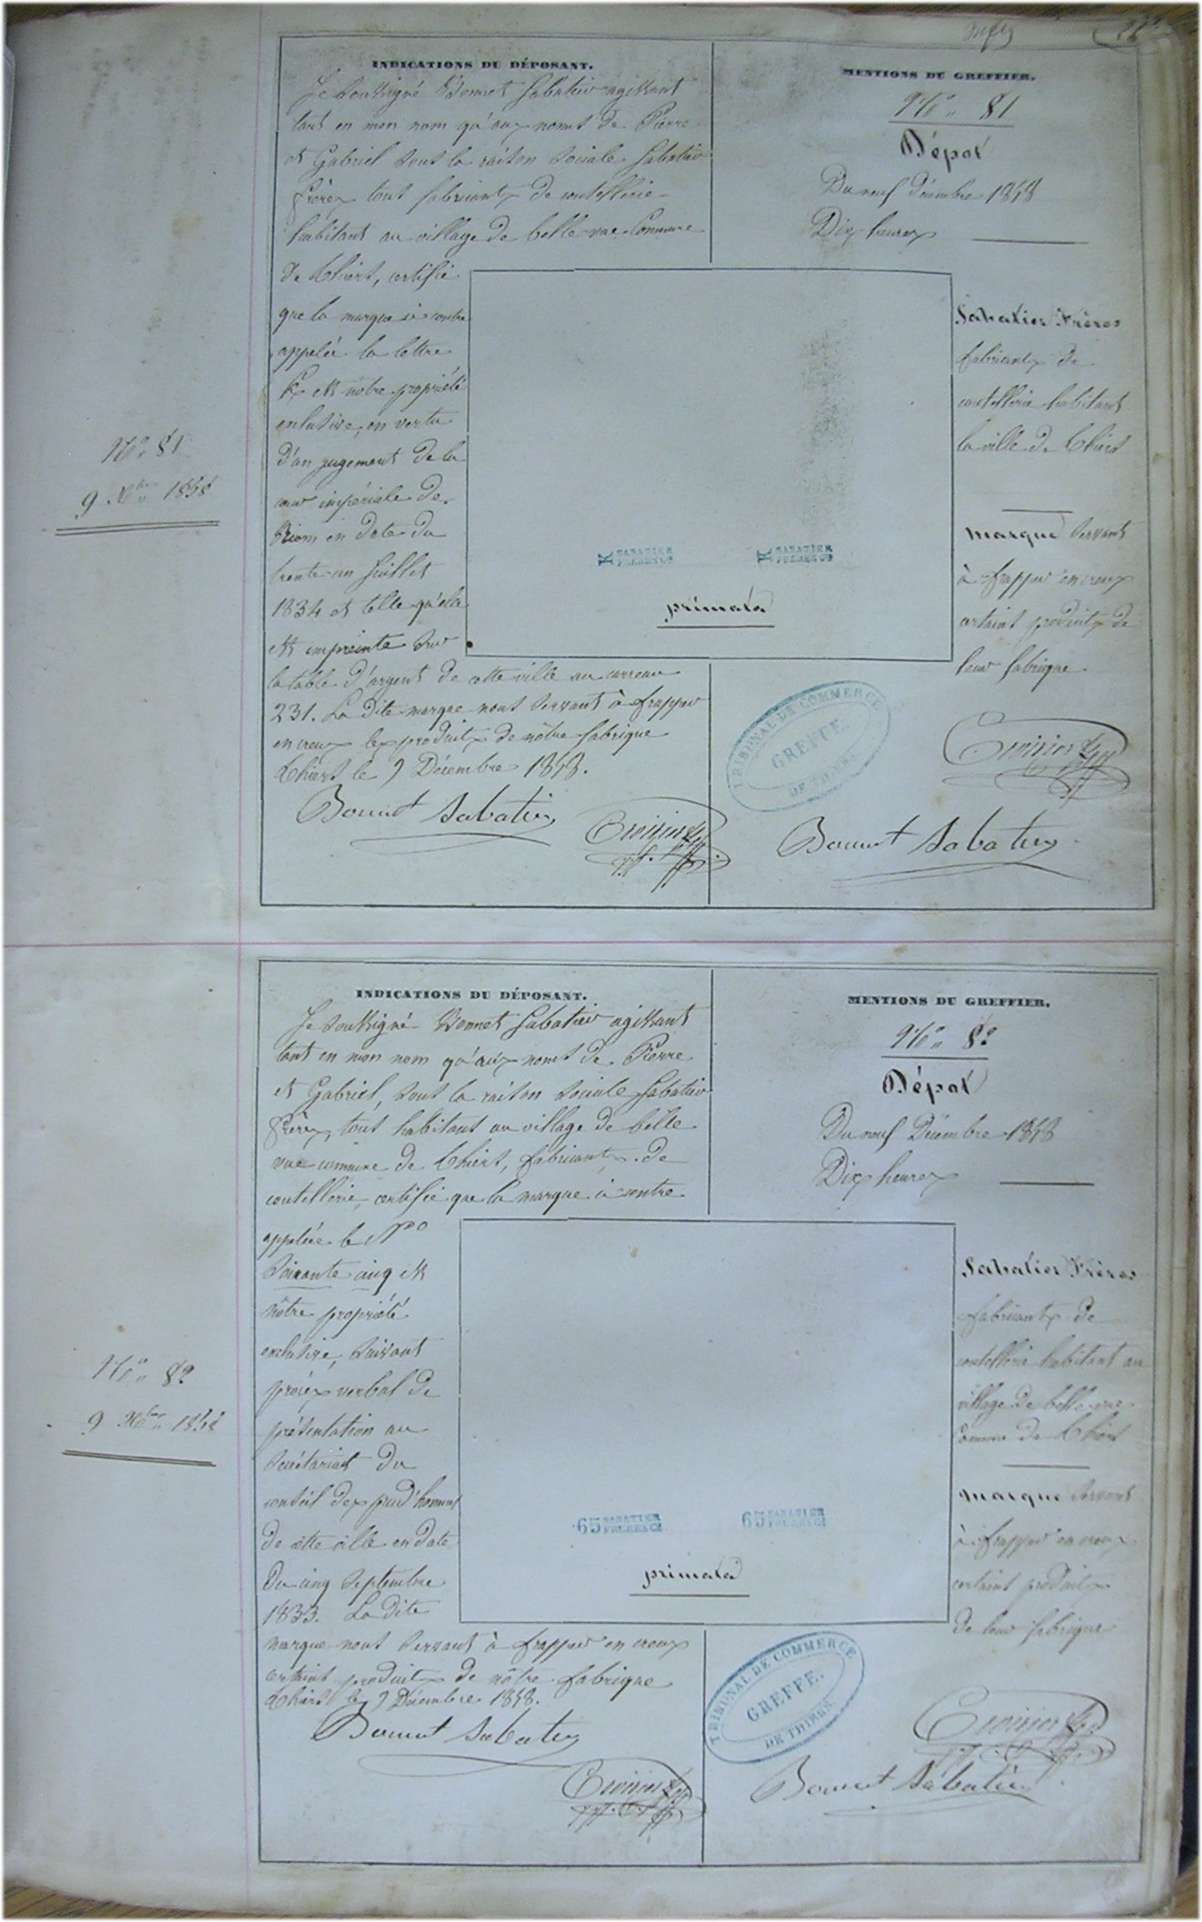 INDICATIONS DU DÉPOSANT.
Je soussigné Bonnet Sabatier agissant
tant en mon nom qu'aux noms de Pierre
et Gabriel sous la raison sociale Sabatier
frères tous fabricants de coutellerie
habitant au village de belle-vue Commune
de Thiers, certifie
que la marque ci contre
appelée la lettre
K est notre propriété
exclusive, en vertu
d'un jugement de la
cour impériale de
Riom en date du
trente un Juillet
1834 et telle qu'elle
est empreinte sur
la table d'argent de cette ville au carreau
231. La dite marque nous servant à frapper
en creux les produits de nôtre fabrique
Thiers le 9 Décembre 1858.
Bonnet Sabatier
MENTIONS DU GREFFIER.
No 81
Dépot
Du neuf décembre 1858
Dix heures
Sabatier Frères
fabricants de
coutellerie habitant
la ville de Thiers
marque servant
à frapper en creux
certains produits de
leur fabrique
K SABATIER FRERES
K SABATIER FRERES
primata
TRIBUNAL DE COMMERCE
GREFFE.
DE THIERS.
Bonnet Sabatier
No 81
9 Xbre 1858
INDICATIONS DU DÉPOSANT.
Je soussigné Bonnet Sabatier agissant
tant en mon nom qu'aux noms de Pierre
et Gabriel, sous la raison sociale Sabatier
frères, tous habitant au village de belle
vue commune de Thiers, fabricants de
coutellerie, certifie que la marque ci contre
appelée le No
Soixante cinq est
nôtre propriété
exclusive, suivant
procès verbal de
présentation au
Secrétariat du
conseil des prud'hommes
de cette ville en date
du cinq Septembre
1833. La dite
marque nous servant à frapper en creux
certains produits de nôtre fabrique
Thiers le 9 Décembre 1858.
Bonnet Sabatier
MENTIONS DU GREFFIER.
No 82
Dépot
Du neuf Décembre 1858
Dix heures
Sabatier Frères
fabricants de
coutellerie habitant au
village de belle-vue
Commune de Thiers
marque servant
à frapper en creux
certains produits
de leur fabrique
65 SABATIER FRERES
65 SABATIER FRERES
primata
TRIBUNAL DE COMMERCE
GREFFE.
DE THIERS.
Bonnet Sabatier
No 82
9 Xbre 1858